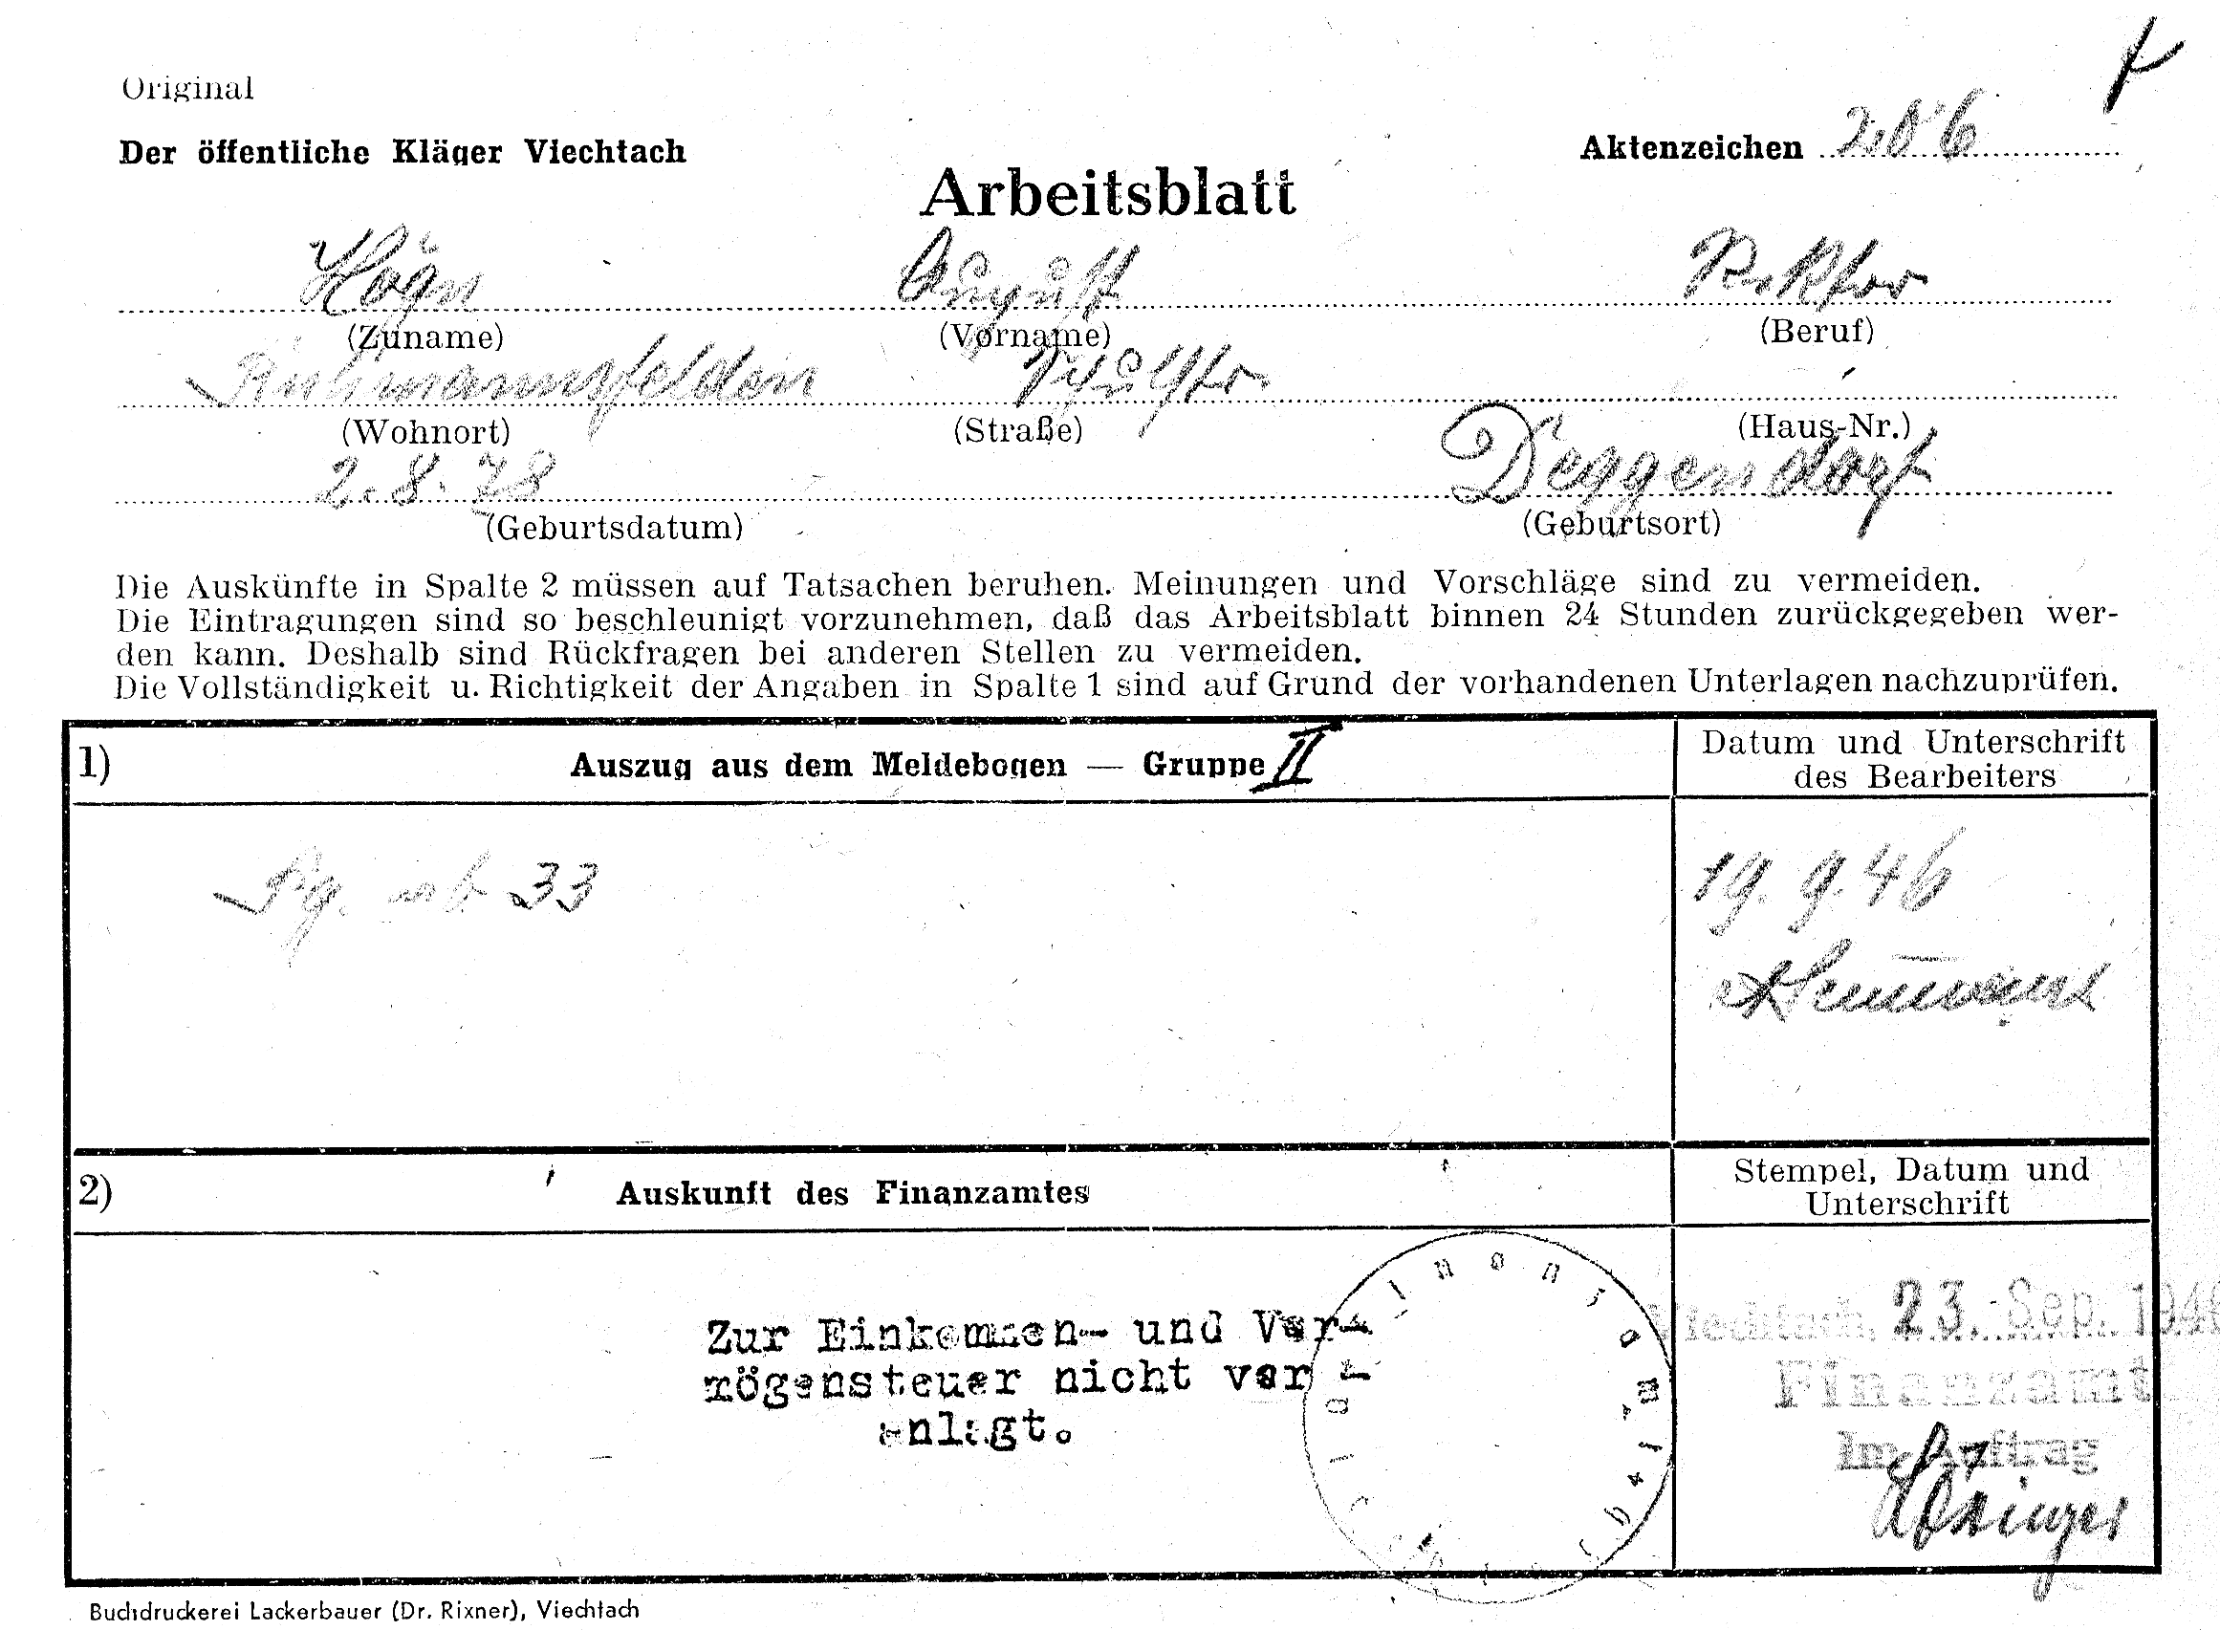 Original
Der öffentliche Kläger Viechtach
Aktenzeichen 206
Arbeitsblatt
Högn August Rektor
(Zuname) (Vorname) (Beruf)
Ruhmannsfelden Schulstr.
(Wohnort) (Straße) (Haus-Nr.)
2. 8. 78 Deggendorf
(Geburtsdatum) (Geburtsort)
Die Auskünfte in Spalte 2 müssen auf Tatsachen beruhen. Meinungen und Vorschläge sind zu vermeiden.
Die Eintragungen sind so beschleunigt vorzunehmen, daß das Arbeitsblatt binnen 24 Stunden zurückgegeben wer-
den kann. Deshalb sind Rückfragen bei anderen Stellen zu vermeiden.
Die Vollständigkeit u. Richtigkeit der Angaben in Spalte 1 sind auf Grund der vorhandenen Unterlagen nachzuprüfen.
1) Auszug aus dem Meldebogen — Gruppe II
Datum und Unterschrift
des Bearbeiters
Pg. ab 33
19. 9. 46
2) Auskunft des Finanzamtes
Stempel, Datum und
Unterschrift
Zur Einkommen- und Ver-
mögensteuer nicht ver
anlagt.
Viechtach, 23. Sep. 1946
Finanzamt
Im Auftrag
Buchdruckerei Lackerbauer (Dr. Rixner), Viechtach